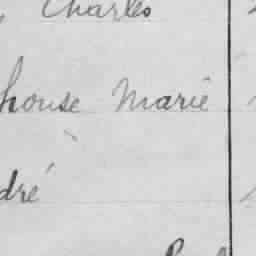 Charles
house Marie
dré